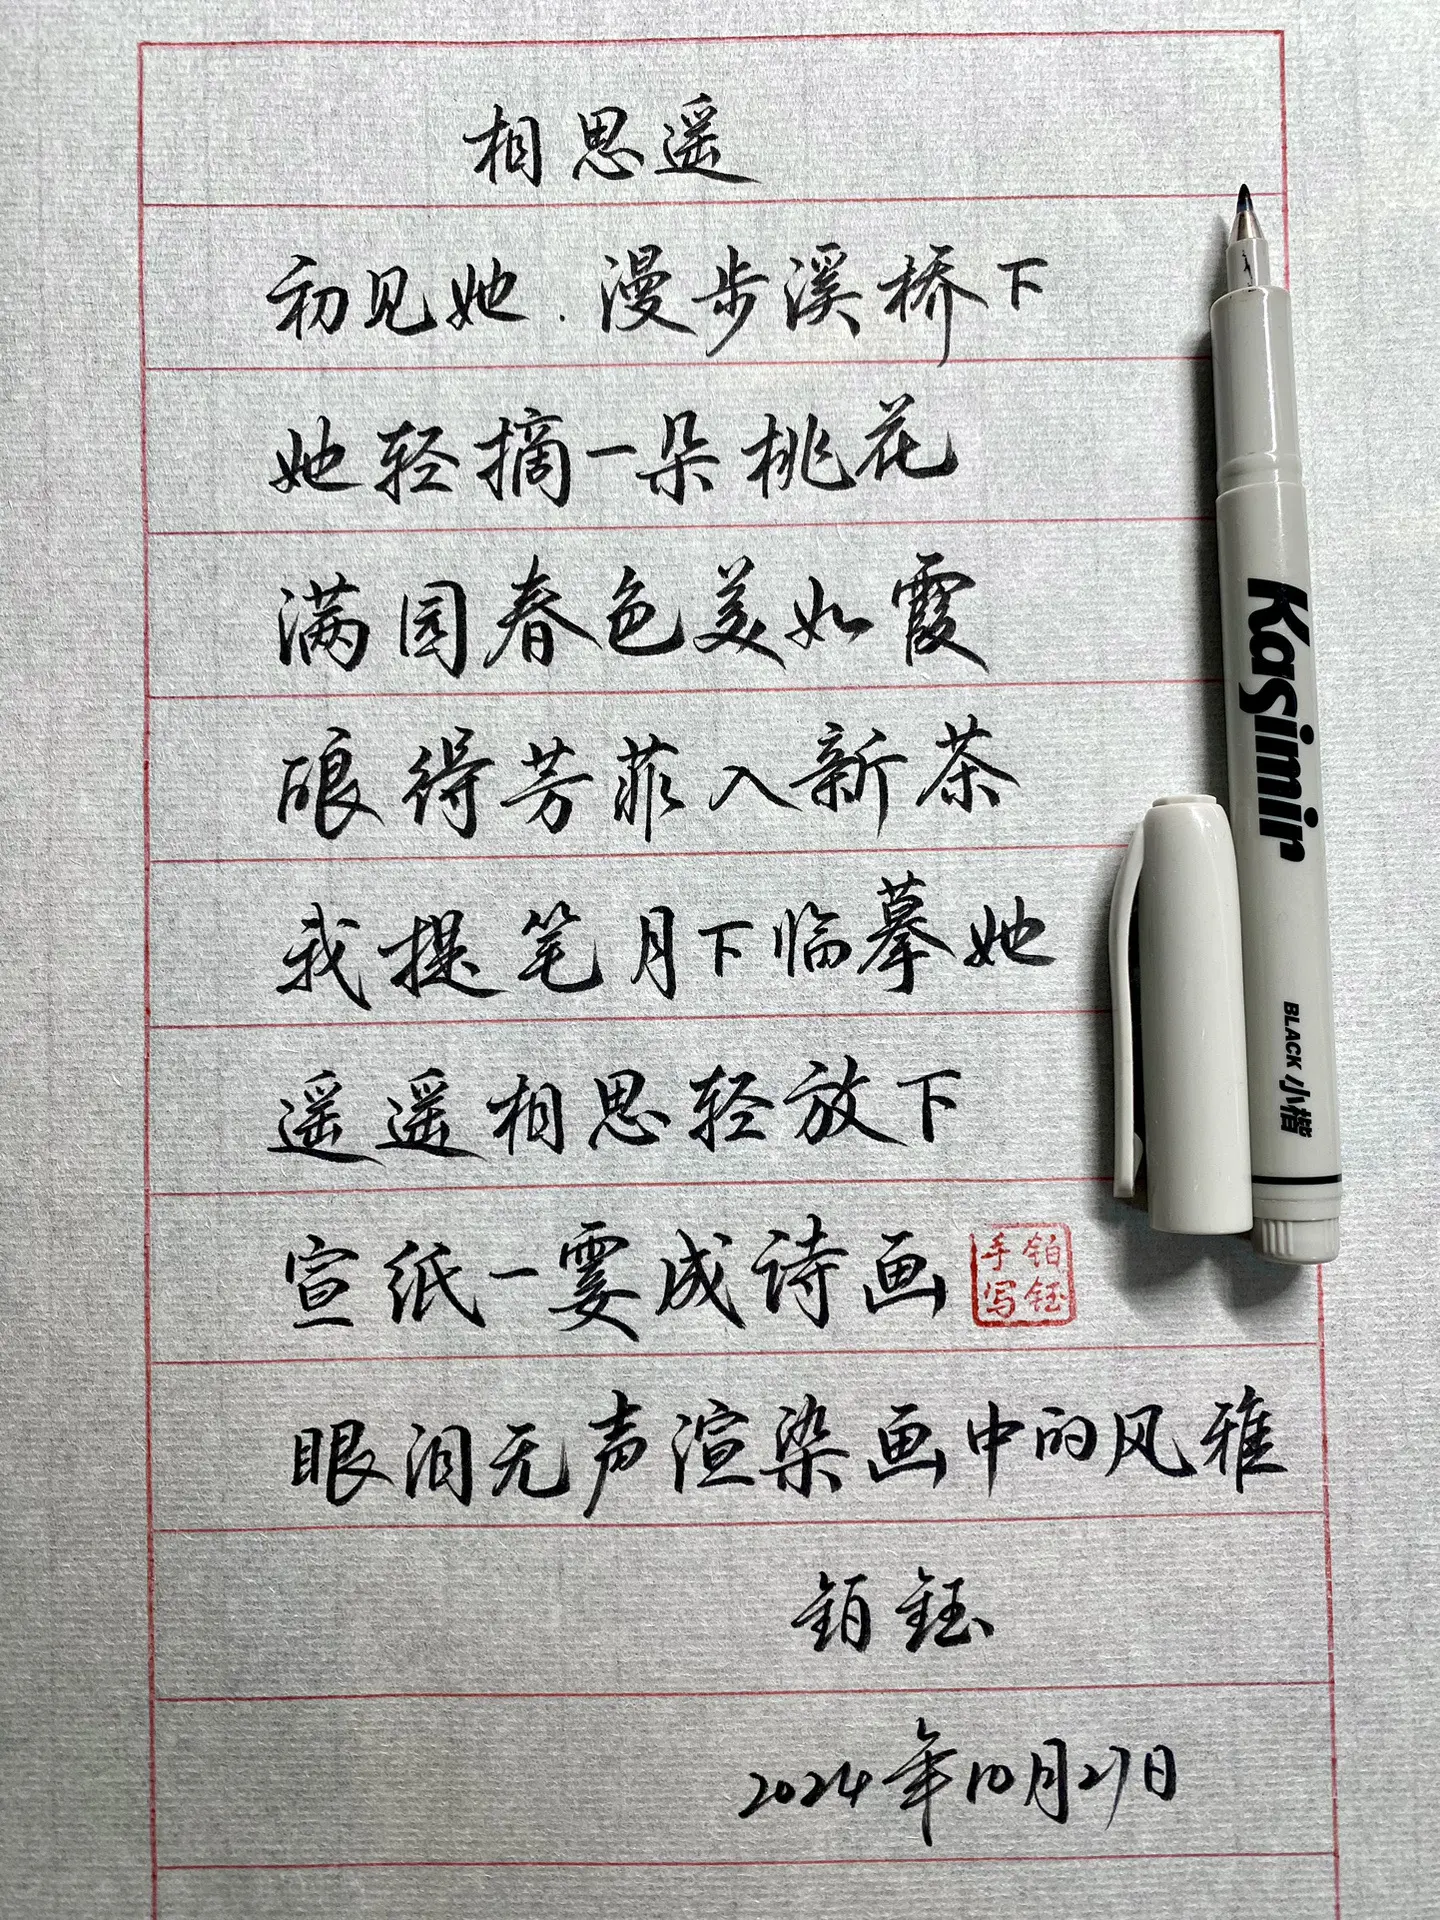 相思遥
初见她.漫步溪桥下
她轻摘一朵桃花
满园春色美如霞
酿得芳菲入新茶
我提笔月下临摹她
遥遥相思轻放下
宣纸一霎成诗画
手写 铂钰
眼泪无声渲染画中的风雅
铂钰
2024年10月27日
Kasimir
BLACK 小楷